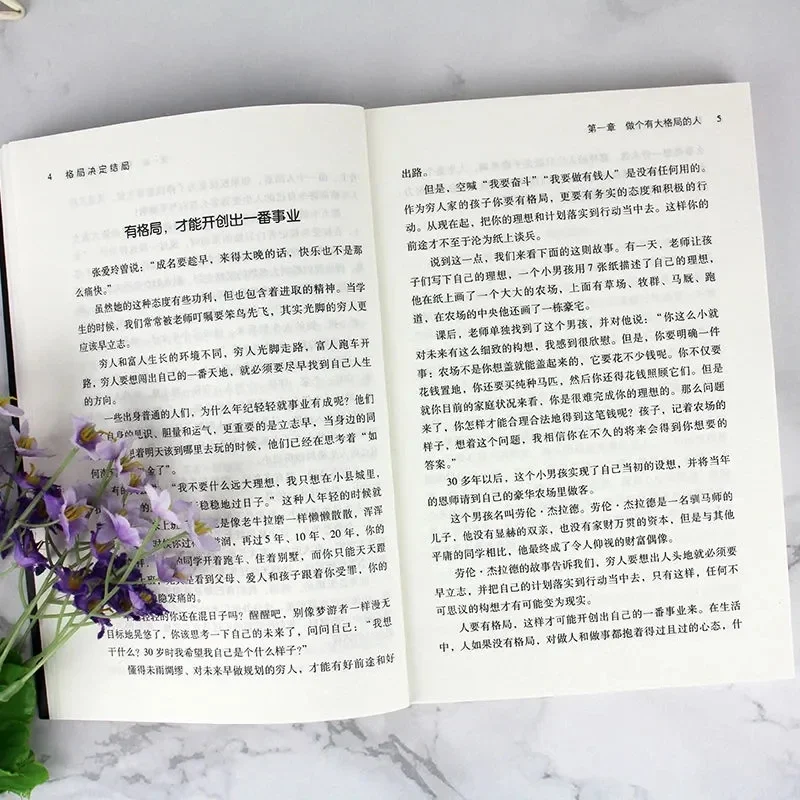 4 格局决定结局
有格局，才能开创出一番事业
张爱玲曾说：“成名要趁早，来得太晚的话，快乐也不是那
么痛快。”
虽然她的这种态度有些功利，但也包含着进取的精神。当学
生的时候，我们常常被老师叮嘱要笨鸟先飞，其实光脚的穷人更
应该早立志。
穷人和富人生长的环境不同，穷人光脚走路，富人跑车开
路，穷人要想闯出自己的一番天地，就必须要尽早找到自己人生
的方向。
一些出身普通的人们，为什么年纪轻轻就事业有成呢？他们
自身的见识、胆量和运气，更重要的是立志早，当身边的同
想着明天该到哪里去玩的时候，他们已经在思考着“如
何
金了”。
有的
“我不要什么远大理想，我只想在小县城里，
稳稳地过日子。”这种人年轻的时候就
像是像老牛拉磨一样懒懒散散，浑浑
时候你过
润，再过 5 年、10 年、20 年，你的
同学开着跑车、住着别墅，而你只能天天蹭
班，
是看到父母、爱人和孩子跟着你受罪，你
隐隐发痛的。
轻轻的你还在混日子吗？醒醒吧，别像梦游者一样漫无
目标地晃悠了，你该思考一下自己的未来了，问问自己：“我想
干什么？30 岁时我希望我自己是个什么样子？”
懂得未雨绸缪、对未来早做规划的穷人，才能有好前途和好
第一章 做个有大格局的人 5
出路。
但是，空喊“我要奋斗”“我要做有钱人”是没有任何用的。
作为穷人家的孩子你要有格局，更要有务实的态度和积极的行
动。从现在起，把你的理想和计划落实到行动当中去。这样你的
前途才不至于沦为纸上谈兵。
说到这一点，我们来看下面的这则故事。有一天，老师让孩
子们写下自己的理想，一个小男孩用 7 张纸描述了自己的理想，
他在纸上画了一个大大的农场，上面有草场、牧群、马厩、跑
道，在农场的中央他还画了一栋豪宅。
课后，老师单独找到了这个男孩，并对他说：“你这么小就
对未来有这么细致的构想，我感到很欣慰。但是，你要明确一件
事：农场不是你想盖就能盖起来的，它要花不少钱呢。你不仅要
花钱置地，你还要买纯种马匹，然后你还得花钱照顾它们。但是
就你目前的家庭状况来看，你是很难完成你的理想的。那么问题
来了，你怎样才能合理合法地得到这笔钱呢？孩子，记着农场的
样子，想着这个问题，我相信你在不久的将来会得到你想要的
答案。”
30 多年以后，这个小男孩实现了自己当初的设想，并将当年
的恩师请到自己的豪华农场里做客。
这个男孩名叫劳伦·杰拉德。劳伦·杰拉德是一名驯马师的
儿子，他没有显赫的双亲，也没有家财万贯的资本，但是与其他
平庸的同学相比，他最终成了令人仰视的财富偶像。
劳伦·杰拉德的故事告诉我们，穷人要想出人头地就必须要
早立志，并把自己的计划落实到行动当中去，只有这样，任何不
可思议的构想才有可能变为现实。
人要有格局，这样才可能开创出自己的一番事业来。在生活
中，人如果没有格局，对做人和做事都抱着得过且过的心态，什